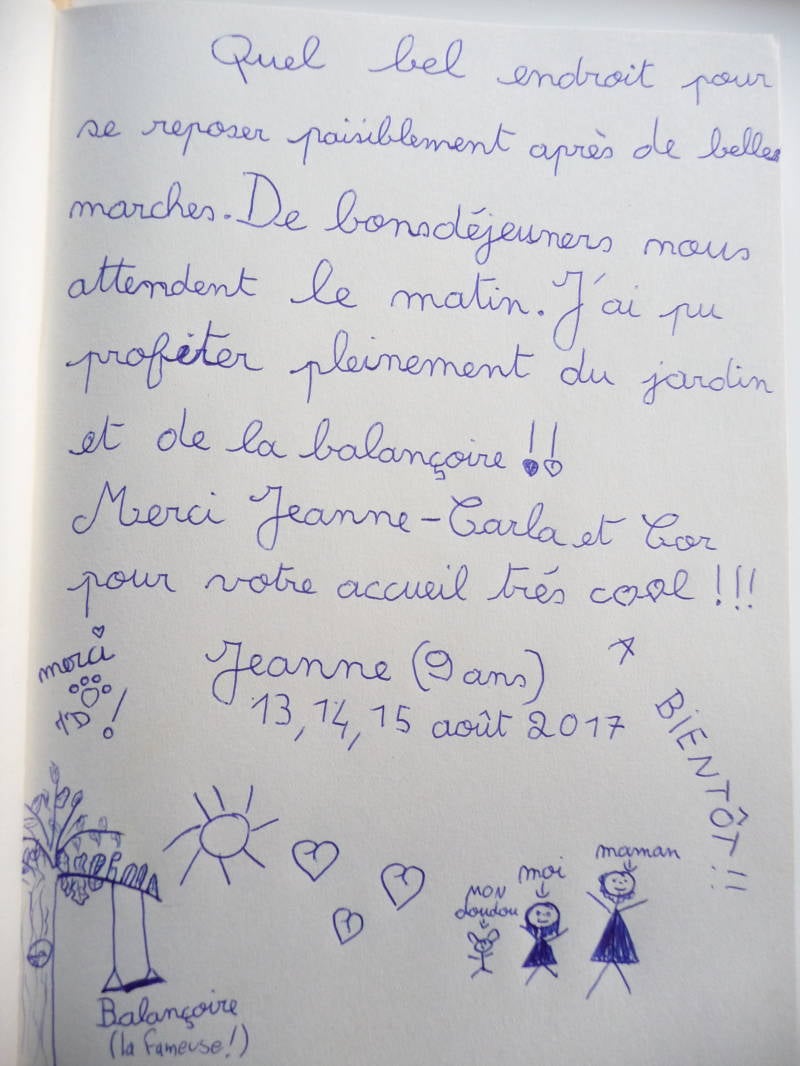 Quel bel endroit pour
se reposer paisiblement après de belles
marches. De bons déjeuners nous
attendent le matin. J'ai pu
profiter pleinement du jardin
et de la balançoire !!
Merci Jeanne-Carla et Cor
pour votre accueil trés cool !!!
Jeanne (9 ans)
13, 14, 15 août 2017
merci
!
À BiENTÔT !!
maman
moi
MON
doudou
Balançoire
(la fameuse !)